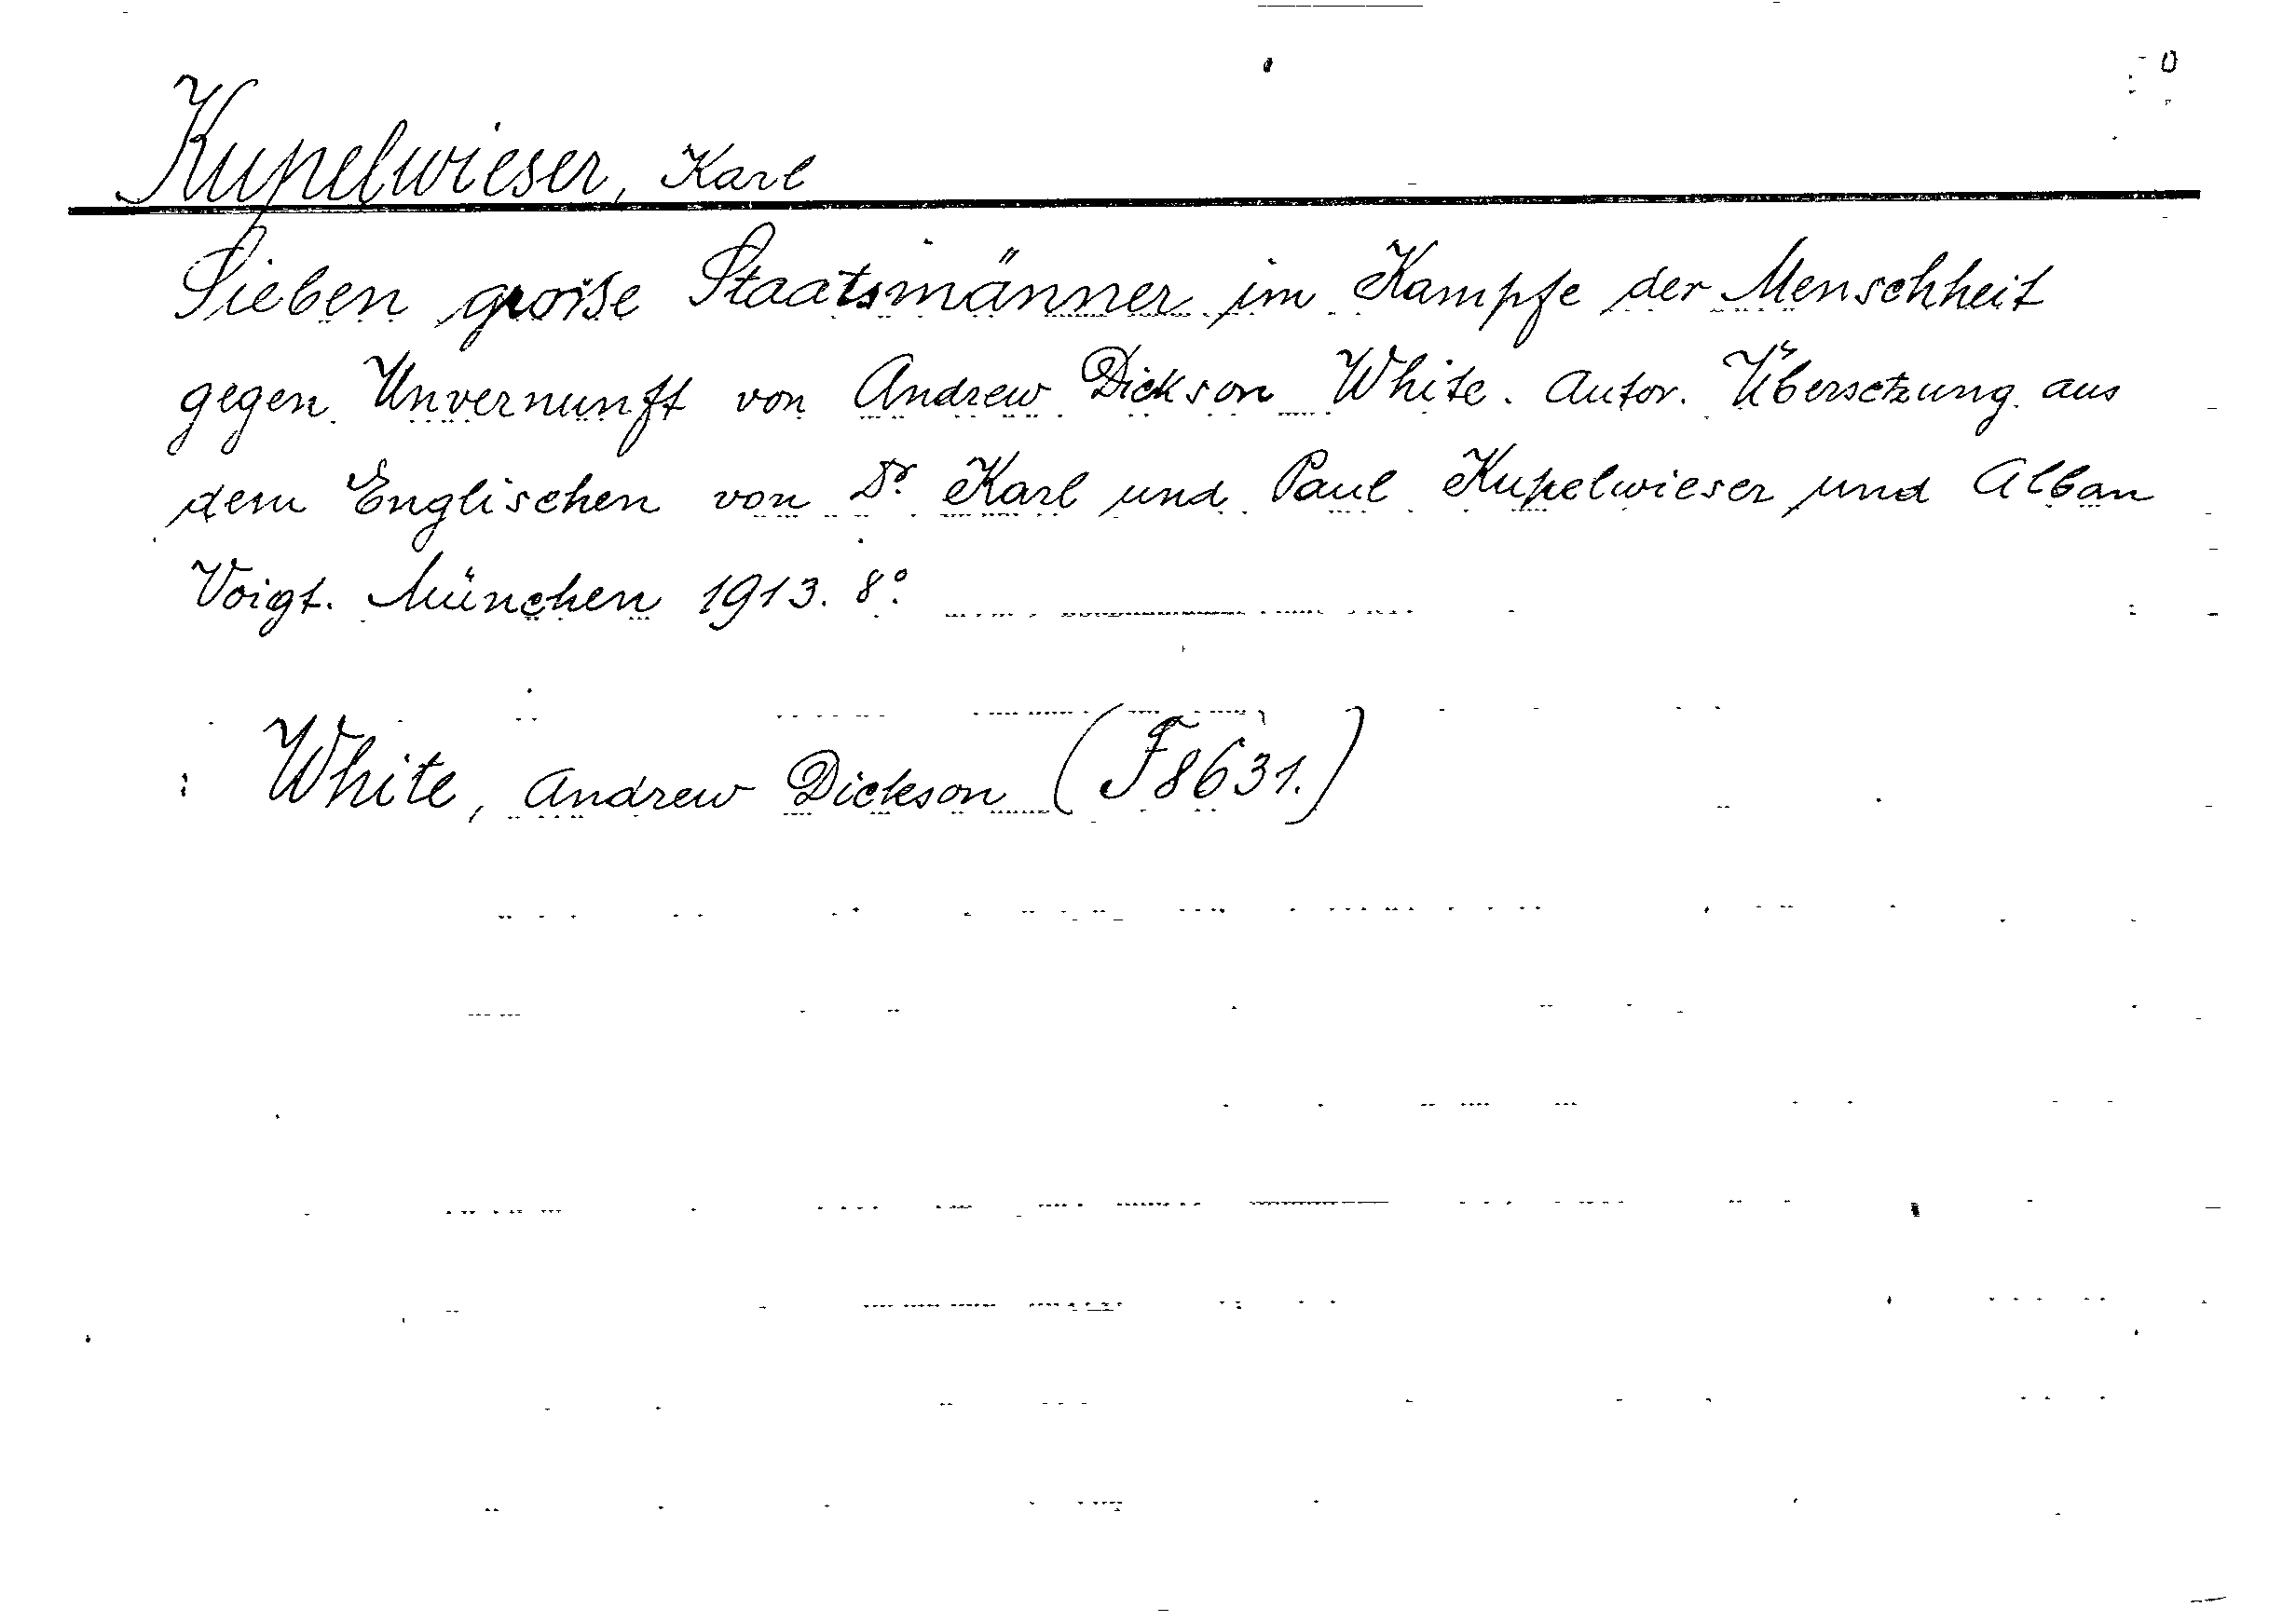 Kupelwieser, Karl
Sieben große Staatsmänner im Kampfe der Menschheit
gegen Unvernunft von Andrew Dickson White. Autor. Übersetzung aus
dem Englischen von Dr. Karl und Paul Kupelwieser und Alban
Voigt. München 1913. 8°.
White, Andrew Dickson (F8631.)